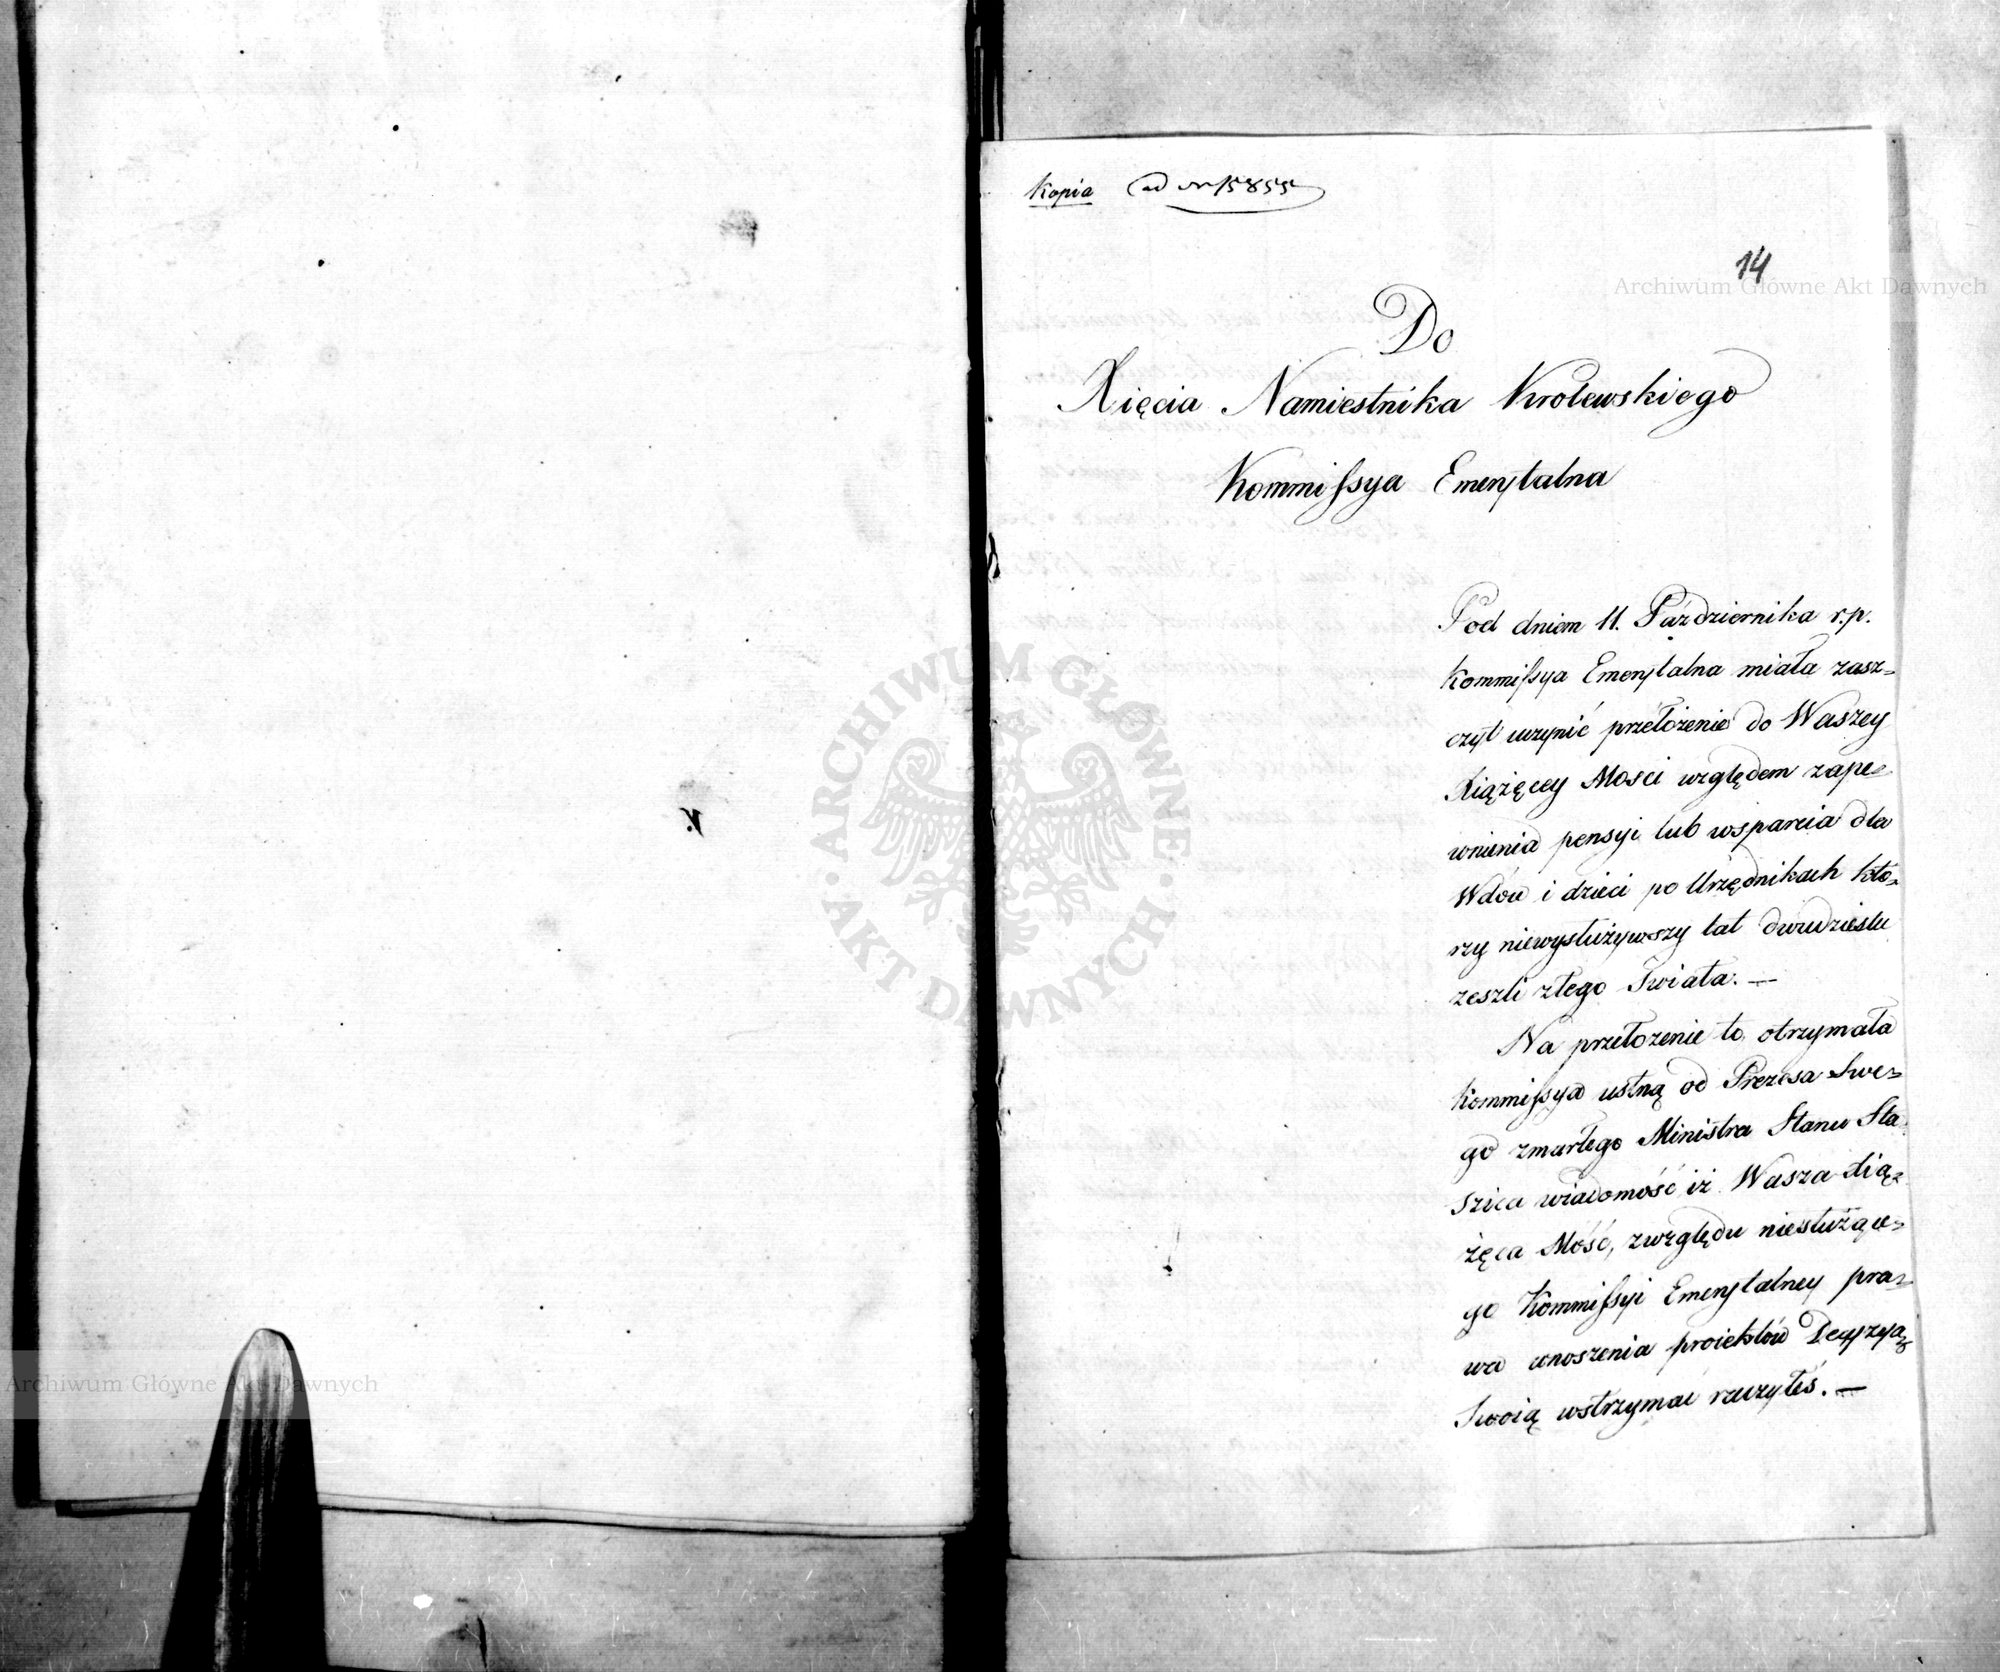 Kopia ad Nr 15855
14
Do
Xięcia Namiestnika Krolewskiego
Kommissya Emerytalna
Pod dniem 11. Października r.p.
Kommissya Emerytalna miała zasz=
czyt uczynić przełożenie do Waszey
Xiążęcey Mosci względem zape=
wnienia pensyi lub wsparcia dla
Wdów i dzieci po Urzędnikach któ=
rzy niewysłużywszy lat dwudziestu
zeszli ztego Swiata. —
Na przełożenie to otrzymała
Kommissya ustną od Prezesa Swe=
go zmarłego Ministra Stanu Sta
szica wiadomość iż Wasza Xią=
żęca Mość, zwzględu niesłużące=
go Kommissyi Emerytalney pra=
wa wnoszenia proiektów Decyzyą
Swoią wstrzymać raczyłeś. —
Archiwum Główne Akt Dawnych
ARCHIWUM GŁÓWNE · AKT DAWNYCH ·
Archiwum Główne Akt Dawnych